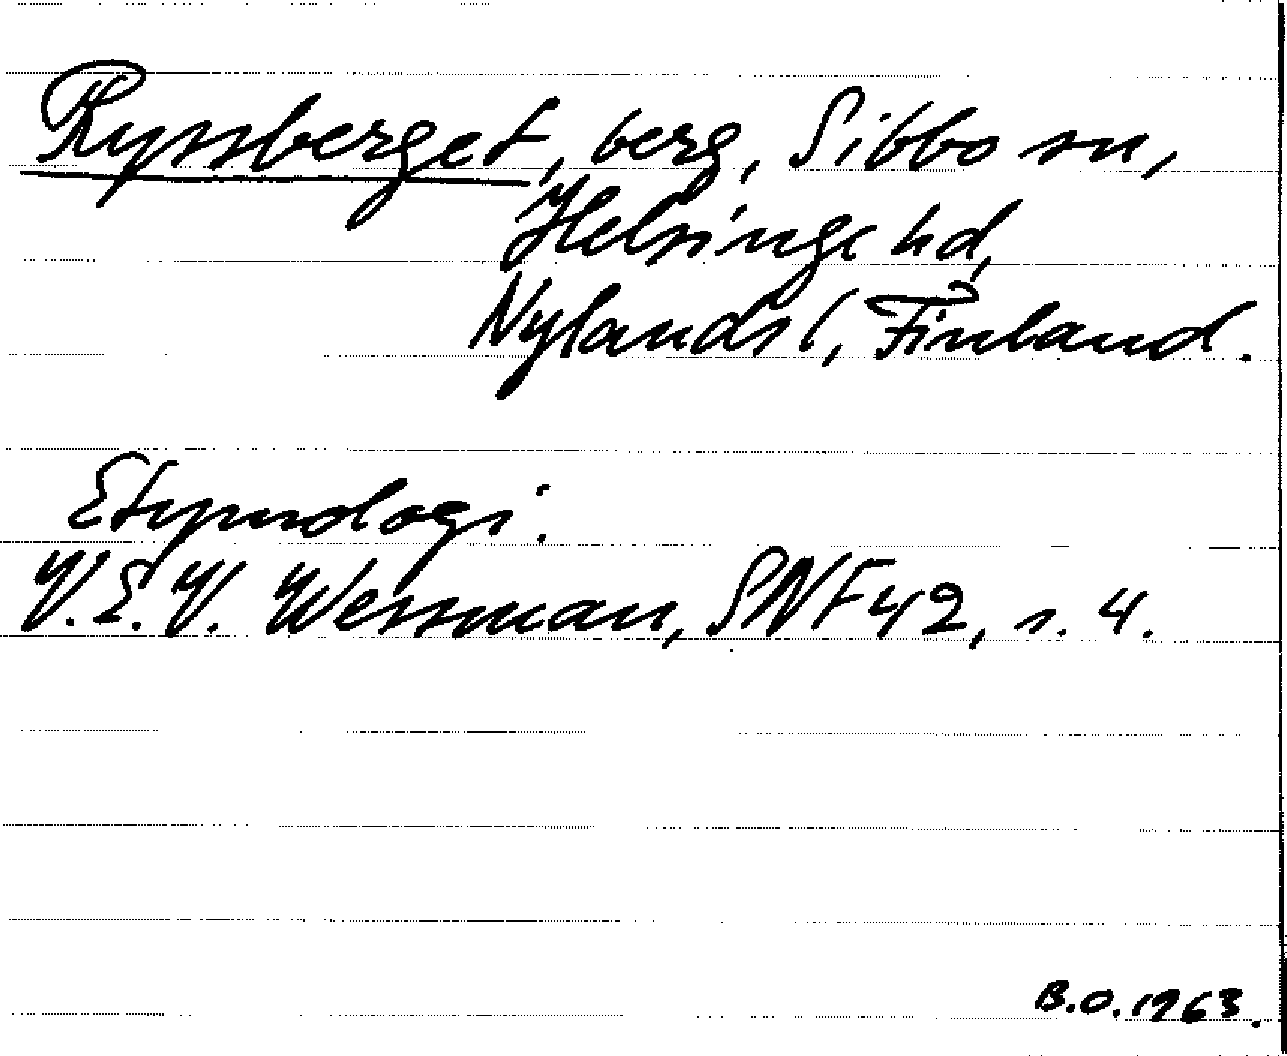 Ryssberget, berg, Sibbo sn,
Helsinge hd,
Nylands l, Finland.
Etymologi:
V.E.V. Wessman, SNF 42, s. 4.
B.O. 1963.